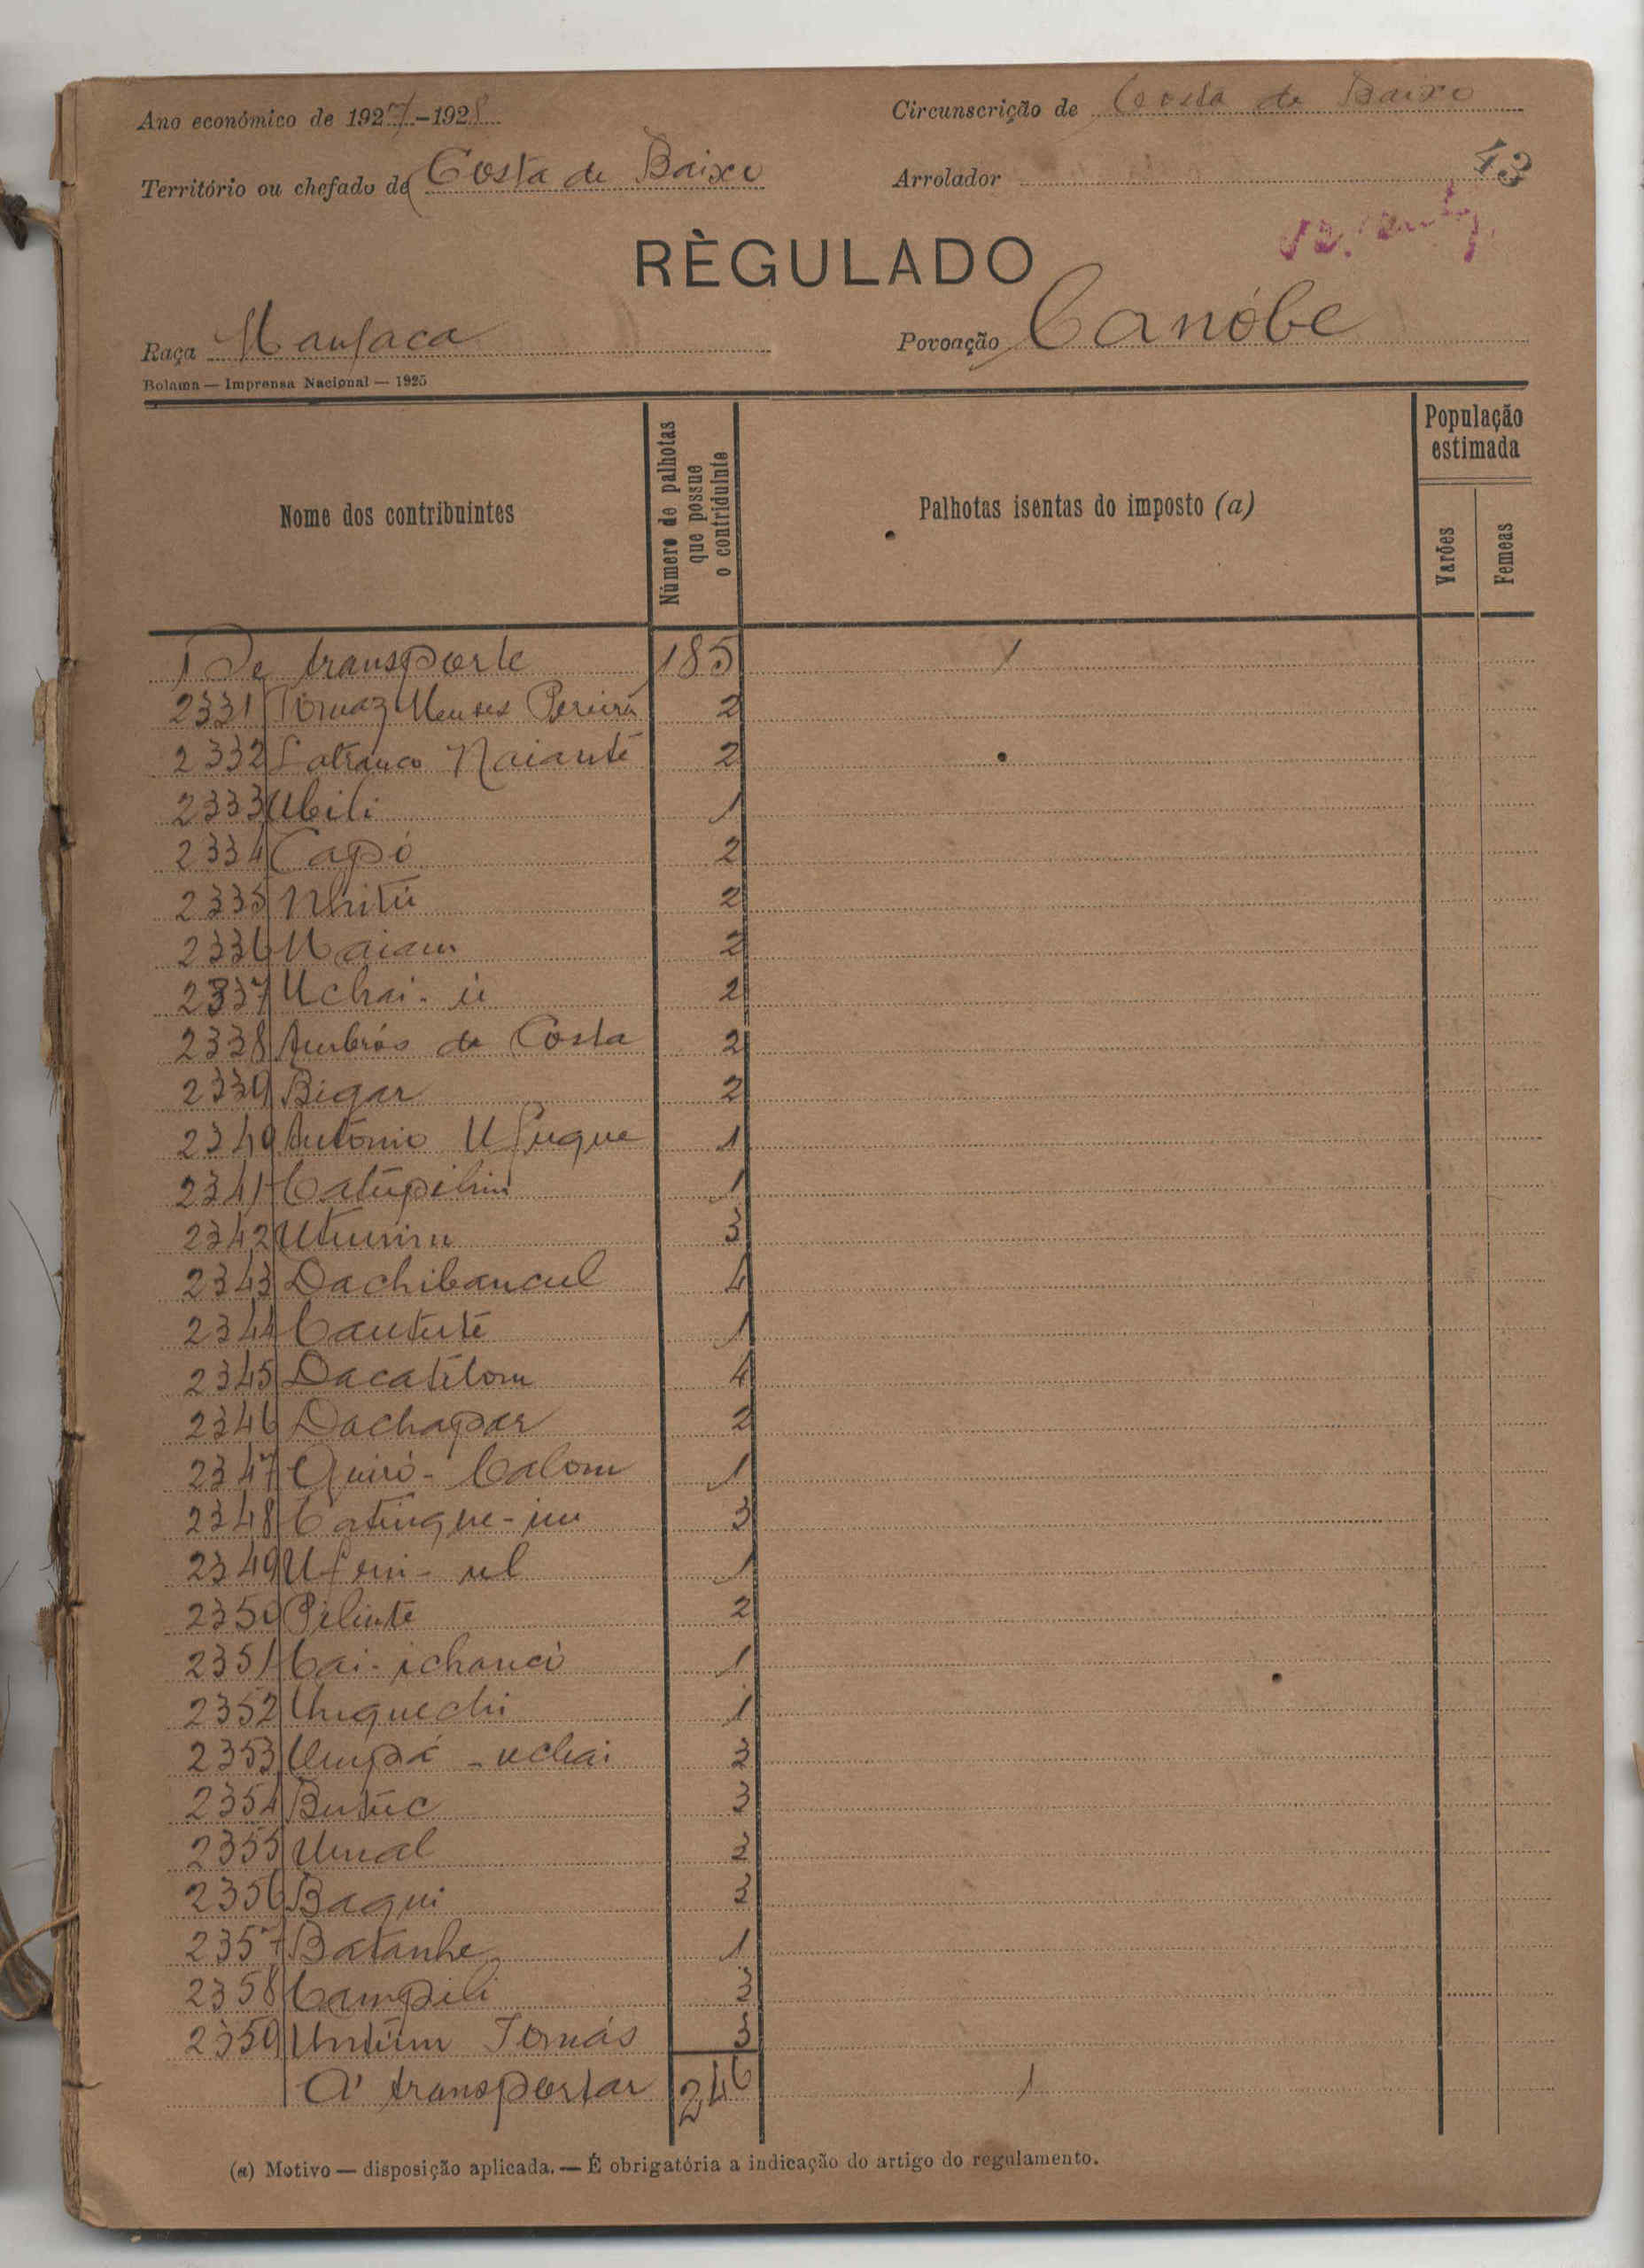 Ano económico de 1927-1928
Circunscrição de Costa de Baixo
Território ou chefado de Costa de Baixo
Arrolador
43
RÈGULADO
Raça Manjaca
Povoação Canóbe
Bolama — Imprensa Nacional — 1925
Nome dos contribuintes
Número de palhotas que possue o contriduinte
Palhotas isentas do imposto (a)
População estimada
Varões
Femeas
De transporte 185 1
2331 Tomaz Menses Pereira 2
2332 Lotranco Naianté 2
2333 Ubili 1
2334 Capó 2
2335 Nhitú 2
2336 Naiam 2
2337 Uchai-ii 2
2338 Ambrós da Costa 2
2339 Bigar 2
2340 António 1
2341 Catúpilim 1
2342 3
2343 Dachibancul 4
2344 Cantuté 1
2345 Dacatilom 4
2346 Dachapar 2
2347 Quiró-Calom 1
2348 Catingue-im 3
2349 1
2350 Pelinté 2
2351 Cai-ichancó 1
2352 Unquechi 1
2353 Umpá-uchai 3
2354 Butúc 3
2355 Umal 2
2356 Baqui 3
2357 Batanhe 1
2358 Campili 3
2359 Untúm Tomás 3
A' transportar 246 1
(a) Motivo — disposição aplicada. — É obrigatória a indicação do artigo do regulamento.